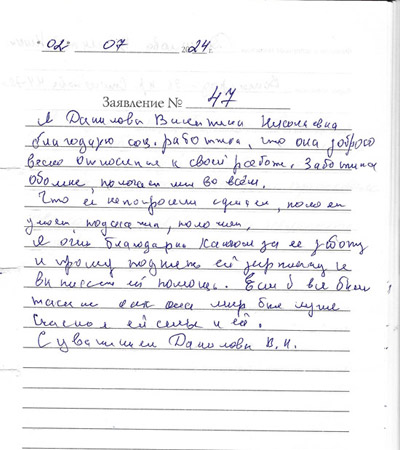 02 07 2024г.
Заявление № 47
Я Данилова Валентина Николаевна
благодарю соц. работника, что она добросо
весно относится к своей работе. Заботится
обо мне, помогает мне во всём.
Что её не попросим сделает, поможет
умоет, подскажет, положит,
Я очень благодарна за её заботу
и прошу поднять ей зарплату и
выписать ей помощь. Если б все были
такие как она мир был лучше
Счастья ей семье и её.
С уважением Данилова В.Н.